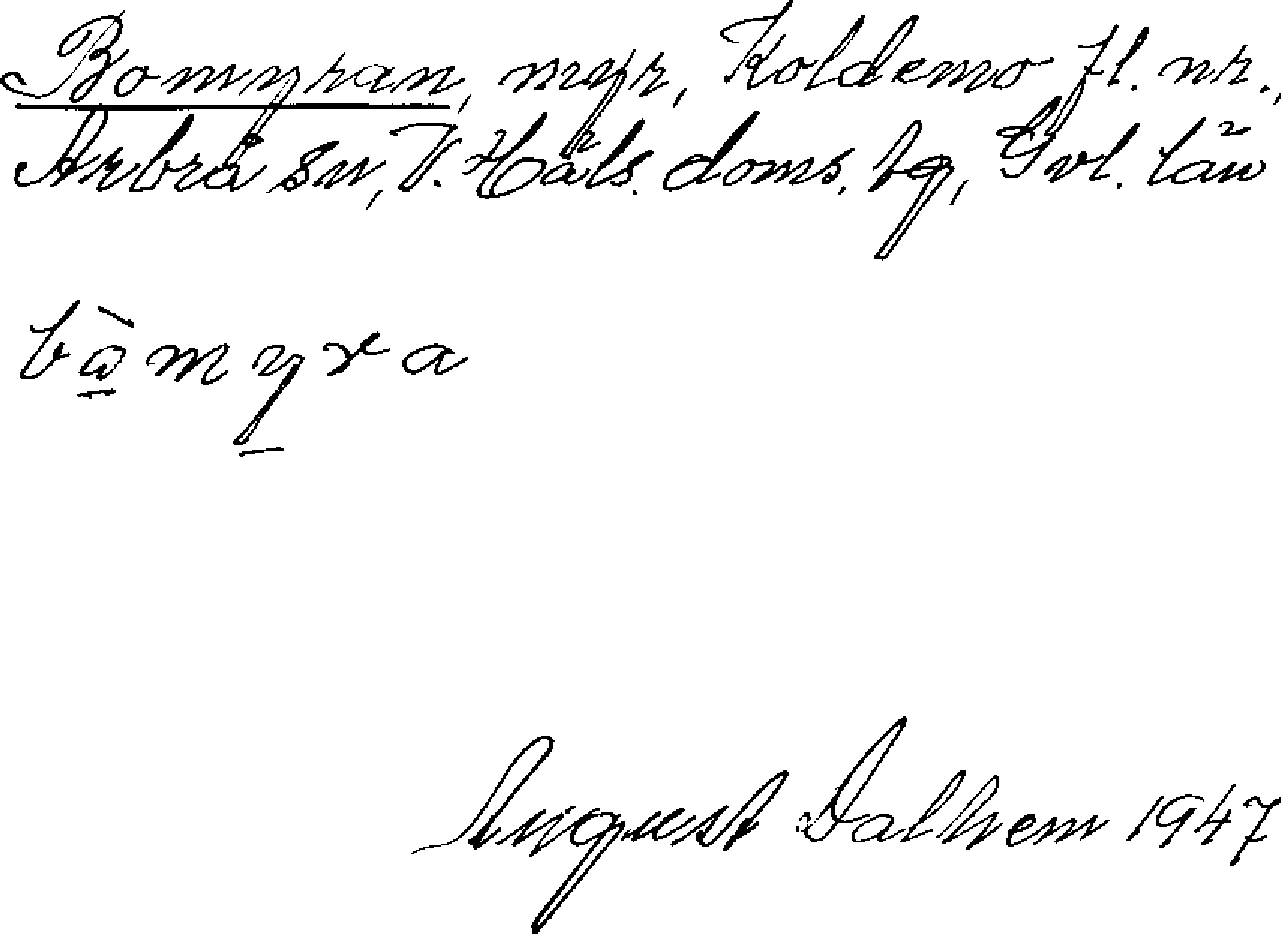 Bomyran, myr, Koldemo fl. nr.,
Arbrå sn, V. Häls. doms. tg, Gvl. län
bὼ̲my̲ra
August Dalhem 1947